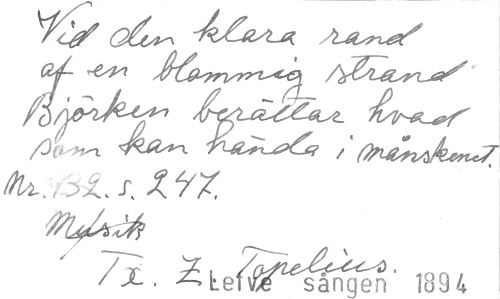 Vid den klara rand
af en blommig strand
Björken berättar hvad
som kan hända i månskenet.
Nr. 132. s. 247.
Musik
Tx. Z. Topelius.
Lefve sången 1894